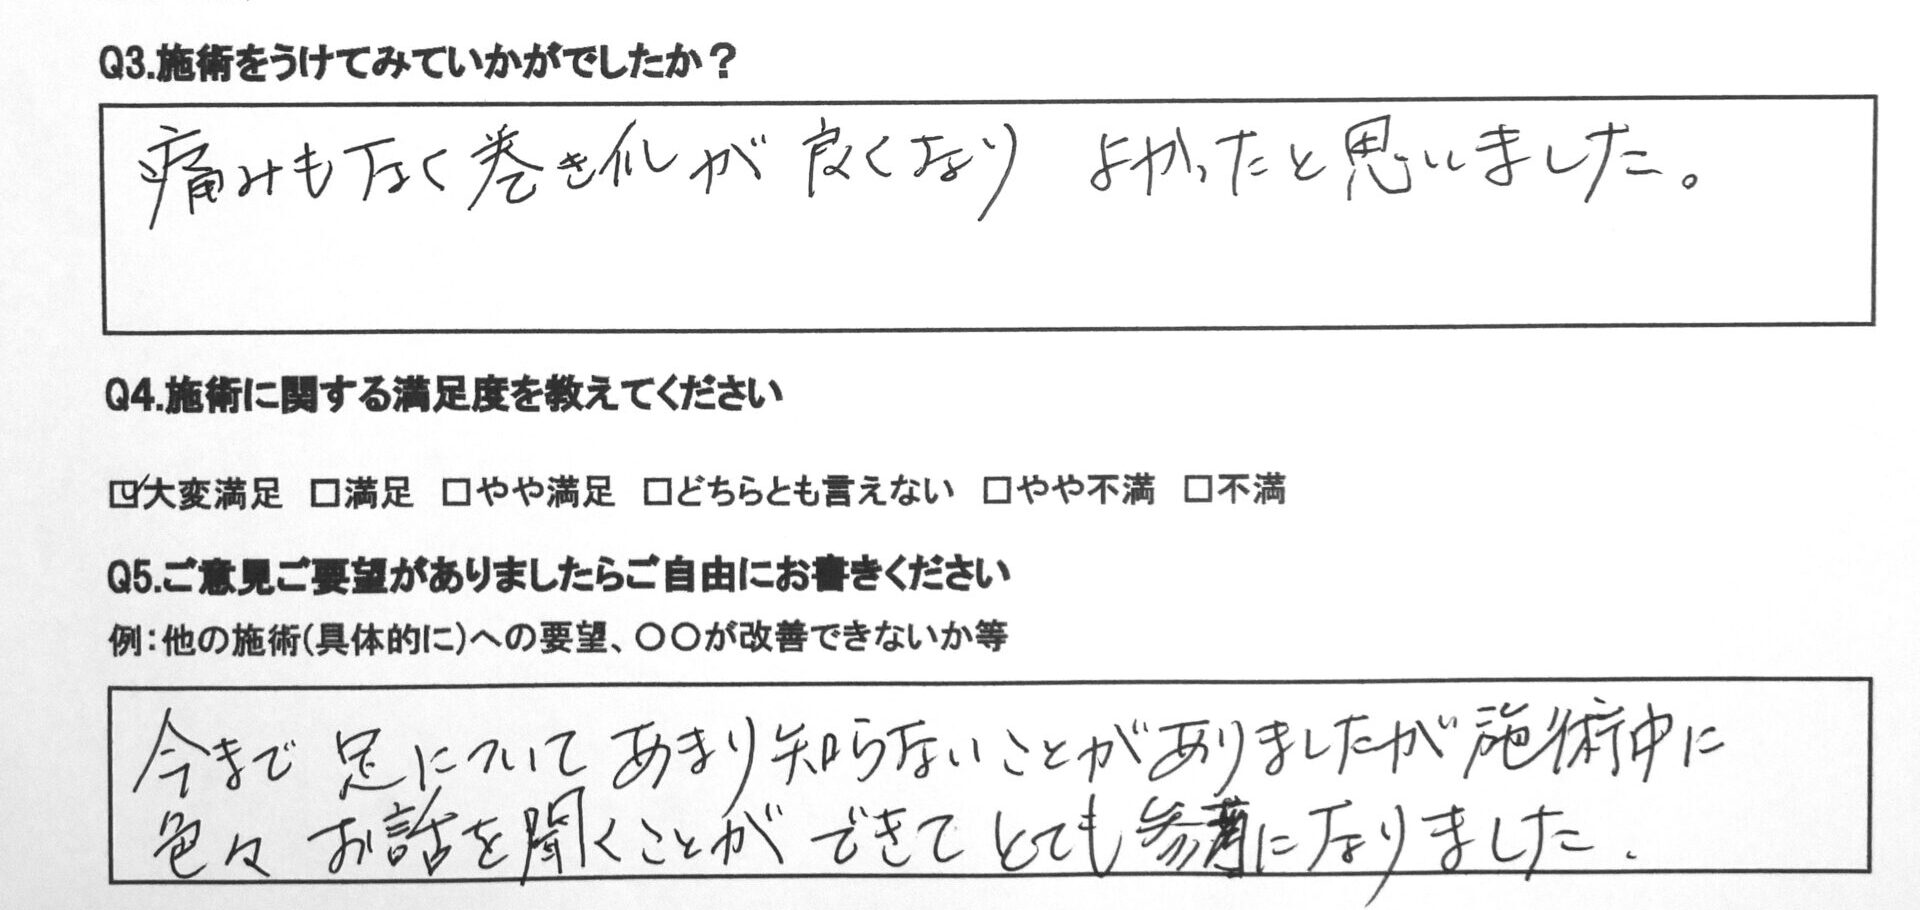 Q3.施術をうけてみていかがでしたか？
痛みもなく巻き爪が良くなり よかったと思いました。
Q4.施術に関する満足度を教えてください
☑大変満足 □満足 □やや満足 □どちらとも言えない □やや不満 □不満
Q5.ご意見ご要望がありましたらご自由にお書きください
例：他の施術(具体的に)への要望、〇〇が改善できないか等
今まで 足について あまり知らないことがありましたが施術中に
色々 お話を聞くことが できて とても参考になりました.